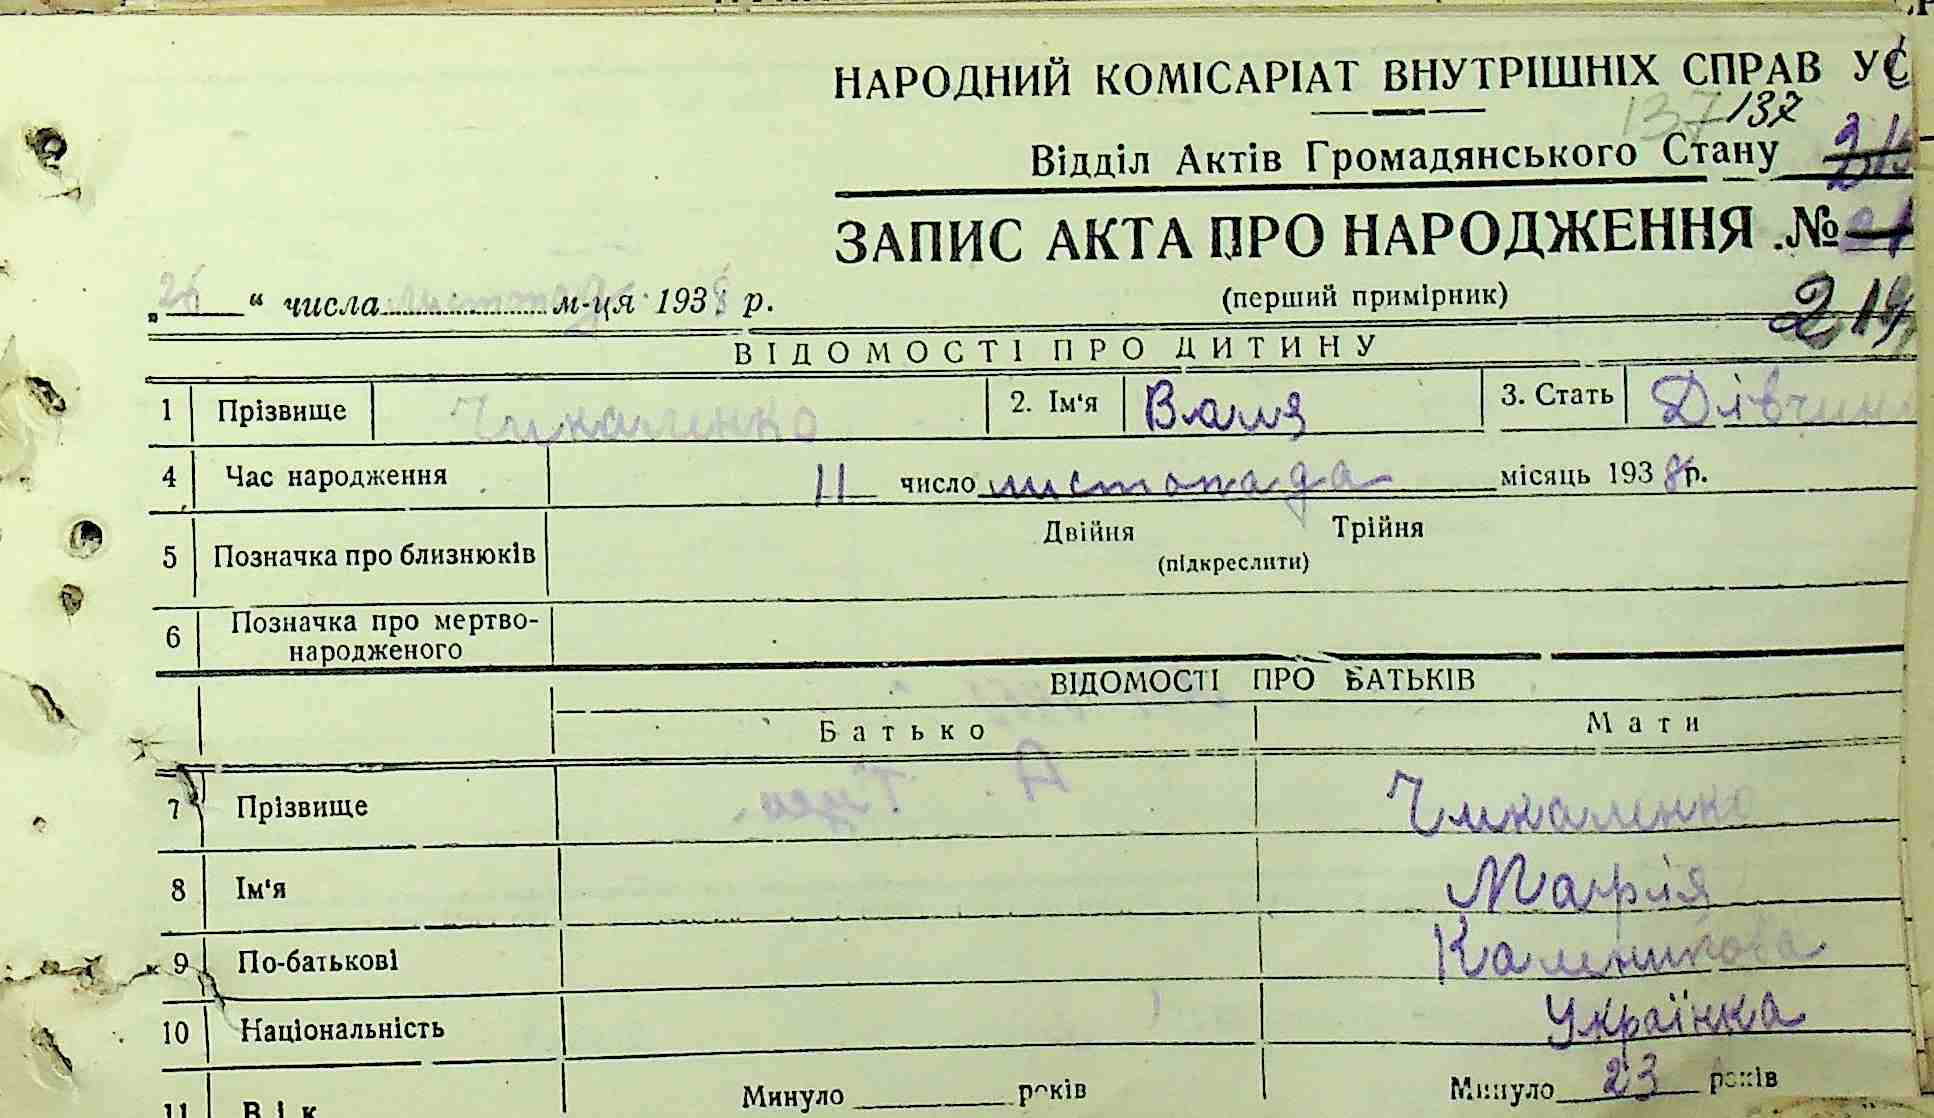 НАРОДНИЙ КОМІСАРІАТ ВНУТРІШНІХ СПРАВ УС
137 137
Відділ Актів Громадянського Стану
ЗАПИС АКТА ПРО НАРОДЖЕННЯ №
„26“ числа листопад м-ця 1938 р.
(перший примірник)
219
ВІДОМОСТІ ПРО ДИТИНУ
1 Прізвище Чикаленко 2. Ім'я Валя 3. Стать Дівчин
4 Час народження 11 число листопада місяць 1938 р.
5 Позначка про близнюків Двійня Трійня
(підкреслити)
6 Позначка про мертво-
народженого
ВІДОМОСТІ ПРО БАТЬКІВ
Батько Мати
7 Прізвище Чикаленко
8 Ім'я Марія
9 По-батькові Калениковa
10 Національність Українка
11 Вік Минуло років Минуло 23 років